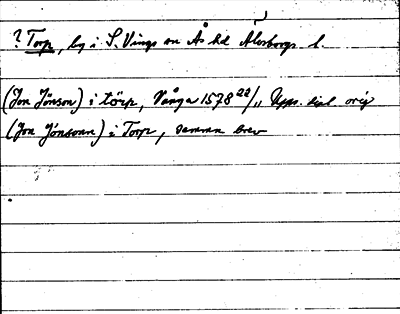 ? Torp, by i S. Vings sn Ås hd Älvsborgs l.
(Jon Jönson) i törp, Vånga 1578 22/11 Upps. dipl orig
(Jon Jönsonn) i Torp, samma brev